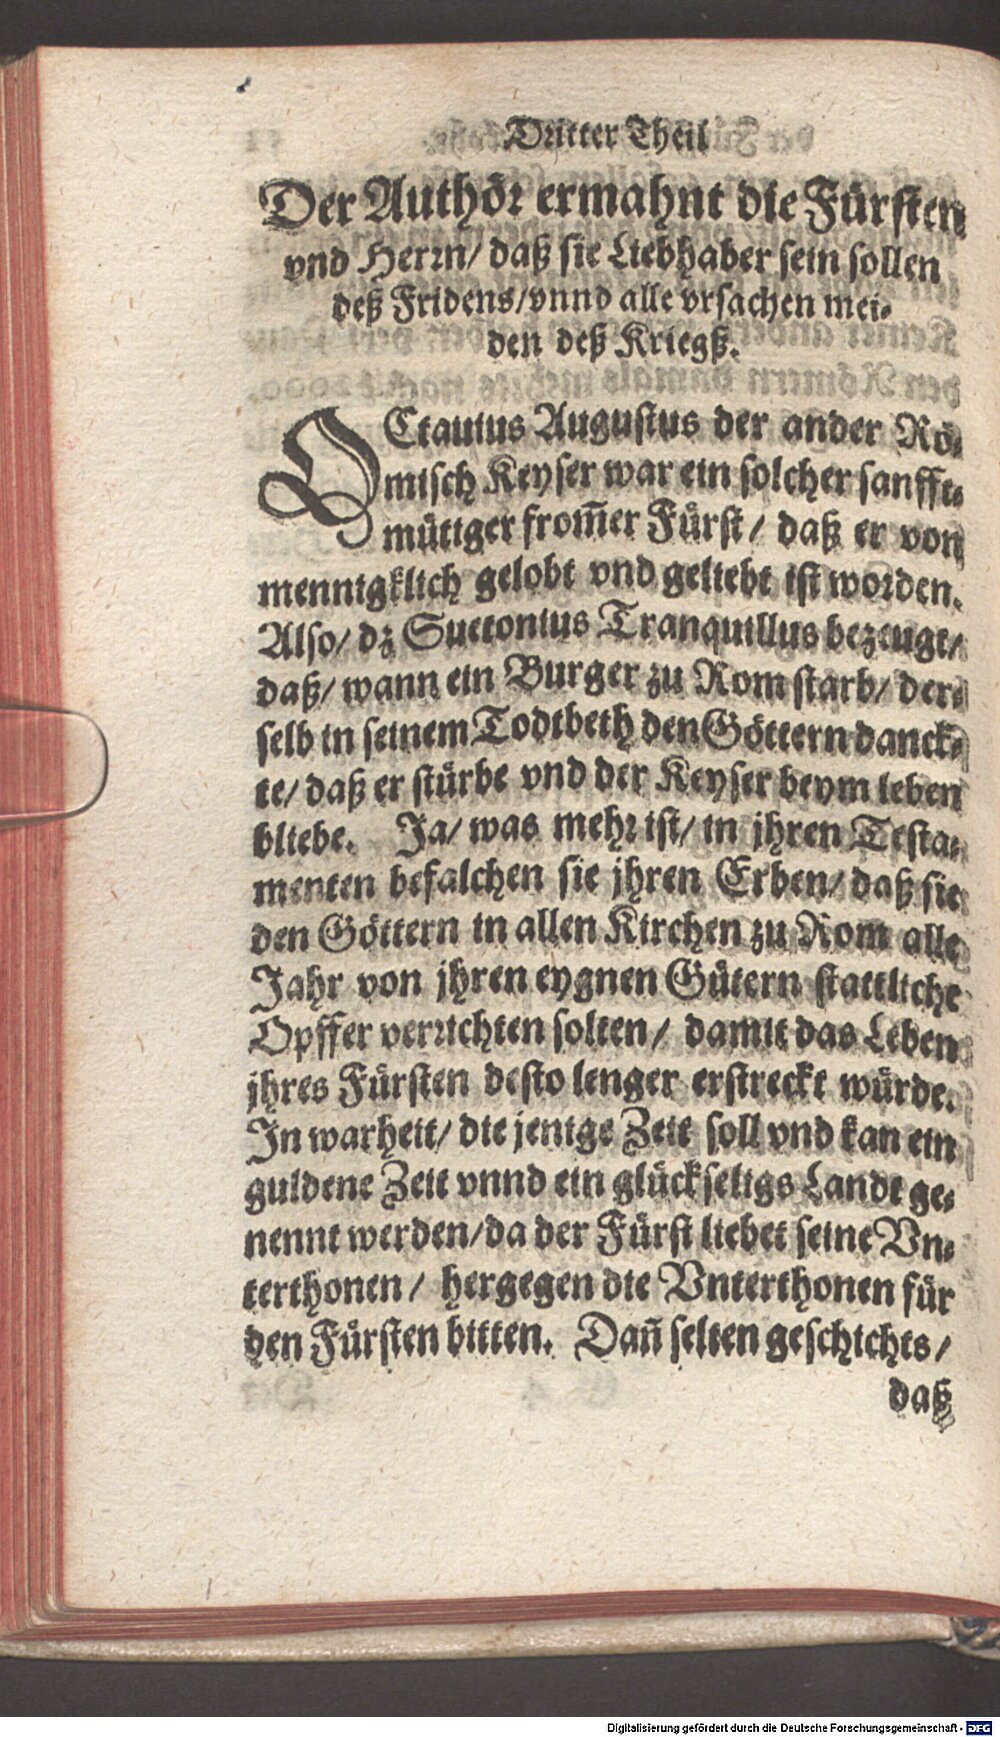 Dritter Theil
Der Authör ermahnt die Fürsten
vnd Herrn/ daß sie Liebhaber sein sollen
deß Fridens/ vnnd alle vrsachen mei-
den deß Kriegß.
OCtauius Augustus der ander Rö-
misch Keyser war ein solcher sanfft-
mütiger from̃er Fürst/ daß er von
mennigklich gelobt vnd geliebt ist worden.
Also/ dz Suetonius Tranquillus bezeugt/
daß/ wann ein Burger zu Rom starb/ der-
selb in seinem Todtbeth den Göttern danck-
te/ daß er stürbe vnd der Keyser beym leben
bliebe. Ja/ was mehr ist/ in jhren Testa-
menten befalchen sie jhren Erben/ daß sie
den Göttern in allen Kirchen zu Rom alle
Jahr von jhren eygnen Gütern stattliche
Opffer verrichten solten/ damit das Leben
jhres Fürsten desto lenger erstreckt würde.
In warheit/ die jenige Zeit soll vnd kan ein
guldene Zeit vnnd ein glückseligs Landt ge-
nennt werden/ da der Fürst liebet seine Vn-
terthonen/ hergegen die Vnterthonen für
den Fürsten bitten. Dañ selten geschichts/
daß
Digitalisierung gefördert durch die Deutsche Forschungsgemeinschaft - DFG